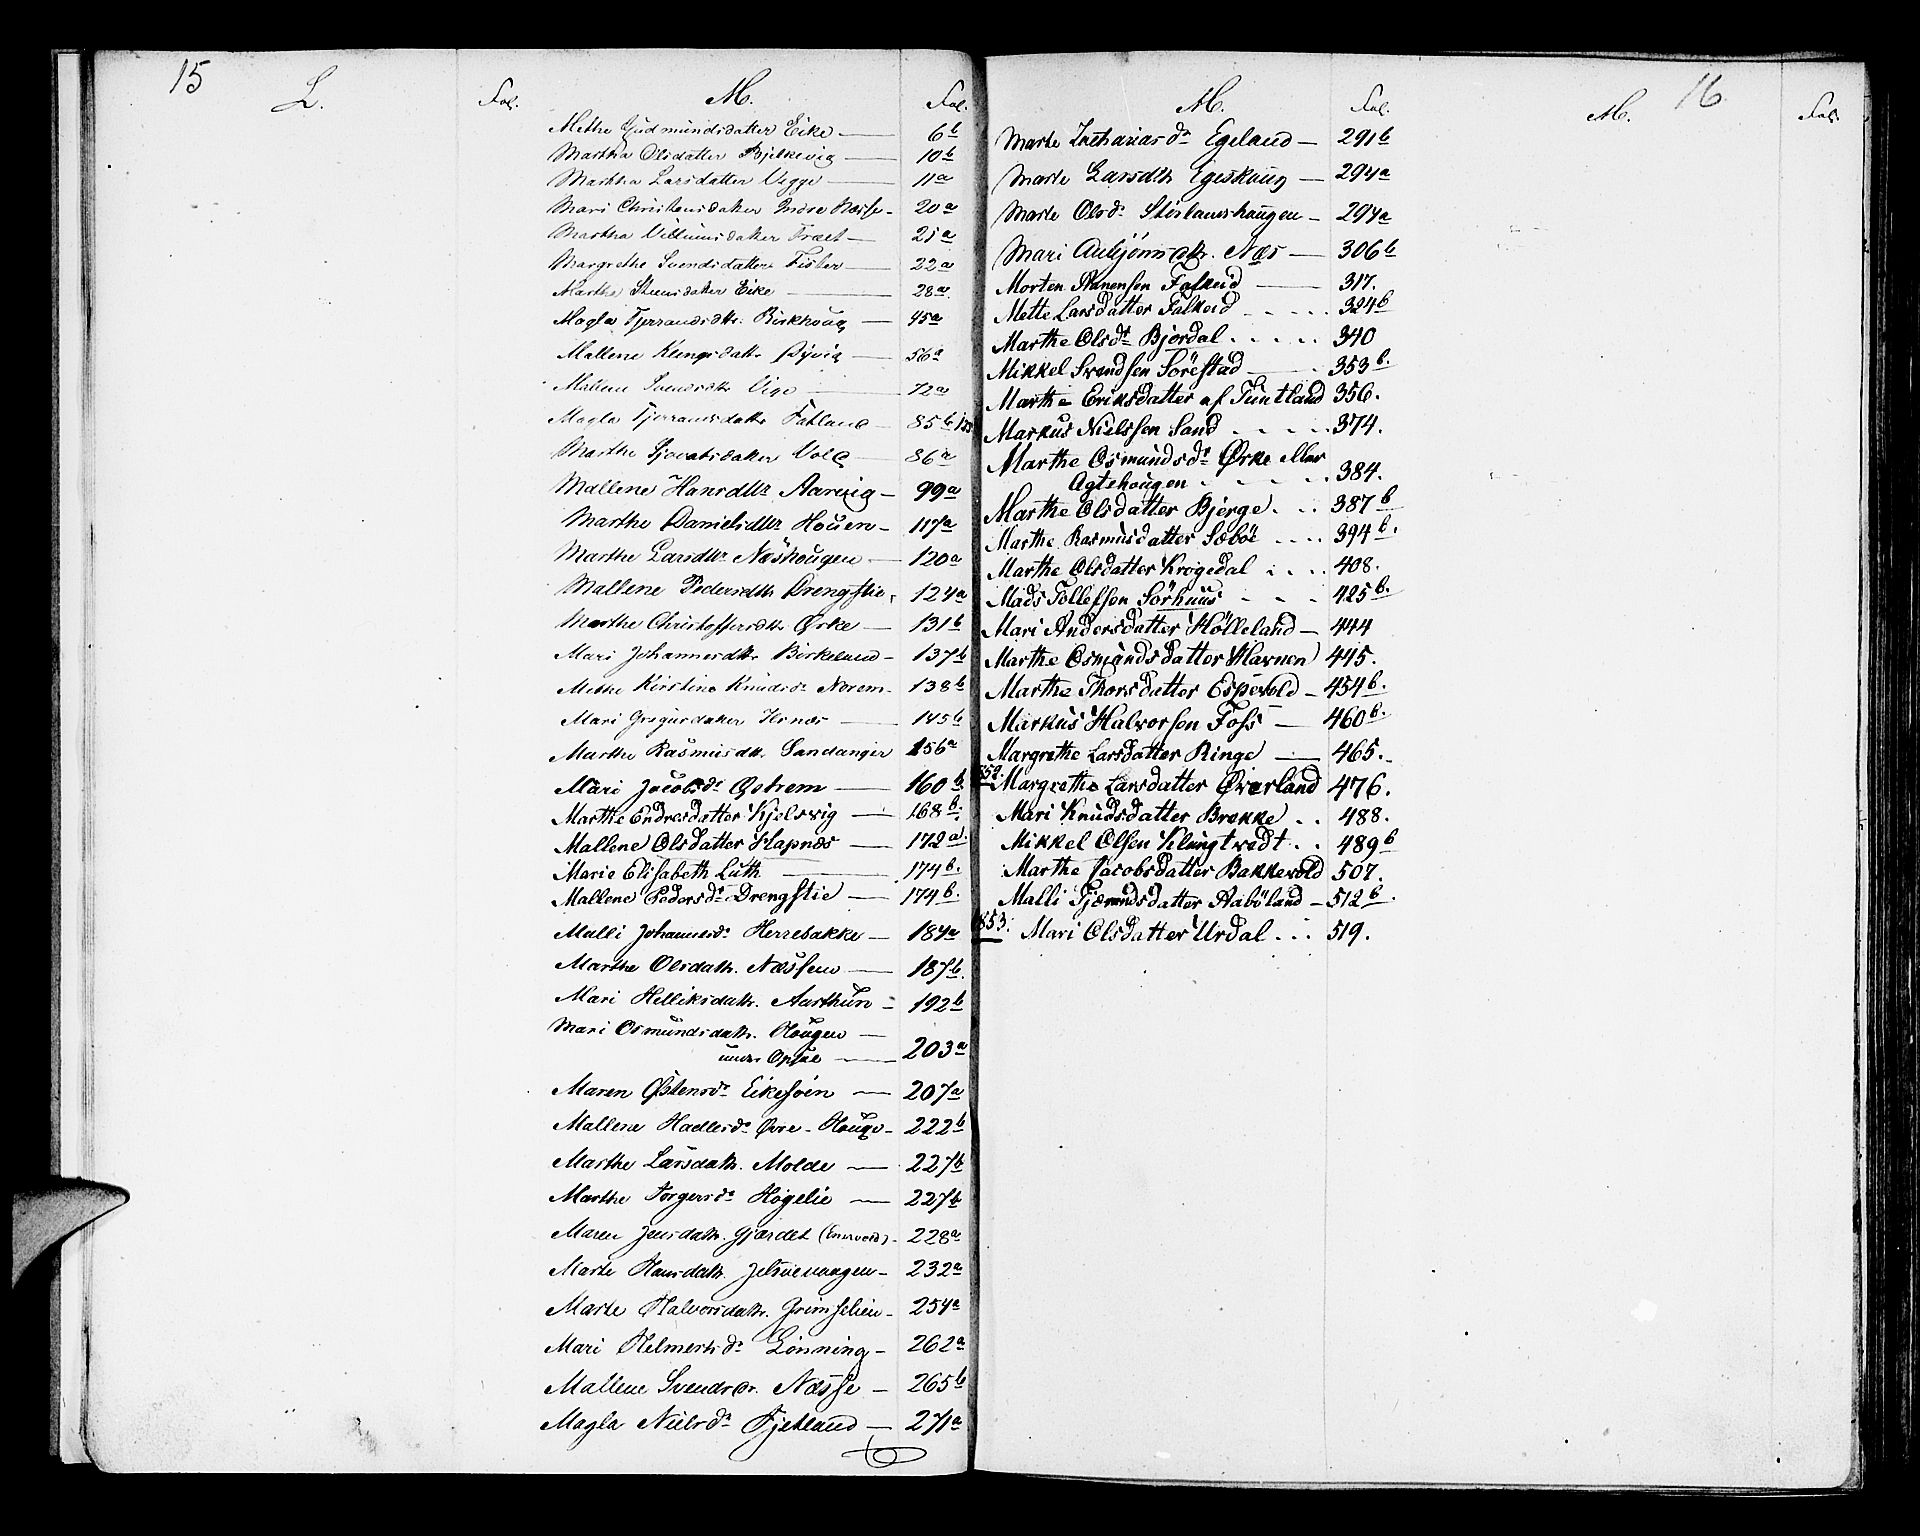 15
L. Fol.
M. Fol.
Methe Gudmundsdatter Eike — 6b
Martha Olsdatter Bjelkevig — 10b
Martha Larsdatter Vegge — 11a
Mari Christensdatter Indre Næsse - 20a
Martha Villumsdatter Træet — 21a
Margrethe Svendsdatter — 22a
Marthe datter Eike — 28a
Magla Tjerrandsdttr. Birkhoug — 45a
Mallene Klengsdattr — 56a
Mallene Svendsdttr — 72a
Magla Tjerransdattr Fatland — 85b
Marthe datter — 86a
Mallene Hansdttr Aarvig — 99a
Marthe Danielsdttr Houen — 117a
Marthe Larsdttr Næshougen — 120a
Mallene Pedersdttr Drengstie, 124a
Marthe Christoffersdttr Ørke — 131b
Mari Johannesdttr Birkeland — 137b
Methe Kirstine Knudsdr Norem - 138b
Mari Gregersdatter — 145b
Marthe Rasmusdtt. Sandanger 156a
Mari Jacobsdr Østrem — 160b
Marthe Endresdatter Kjelsvig — 168b.
Mallene Olsdatter Hapnæs — 172a.
Marie Elisabeth Luth — 174b.
Mallene Pedersdr Drengstie — 174b.
Malli Johannesdr Herrebakke — 184a
Marthe Olsdattr. Næssen — 187b.
Mari Helliksdattr. Aarthun - 192b
Mari Osmundsdattr. Hougen —
under Opsal — 203a
Maren Østensdr Eikesoien — 207a
Mallene Hadlersdr Øvre - Houge - 222b
Marthe Larsdattr. Molde — 227b
Marthe Torgersdr Høgelie — 227b
Maren Jensdattr. Gjærdet - 228a
Marte Hansdattr. - 232a
Marte Halvorsdattr. Grimselien - 254a
Mari Helmersdr Lønning - 262a
Mallene Svendsdr. Næsse — 265b
Magla Nielsdr Tjetland — 271a
M. Fol.
Marte Zachariasdr Egeland — 291b
Marte Larsdttr Egeskoug — 294a
Marte Olsdr - 294a
Mari dttr. Næs — 306b
Morten Aanensen Falkeid — 317.
Mette Larsdatter Falkeid ..... 324b
Marthe Olsdr Bjordal ..... 340
Mikkel Svendsen Sørestad — 353b.
Marthe Eriksdatter af Tuntland 356.
Markus Nielssen Sand ..... 374.
Marthe Osmundsdr Ørke eller
Agtehougen ..... 384.
Marthe Olsdatter Bjerge. .. 387b
Marthe Rasmusdatter Sæbøe .... 394b.
Marthe Olsdatter Krogedal .... 408.
Mads Tollefsen Sørhuus - - - 425b.
Mari Andersdatter Hølleland — 444
Marthe Osmundsdatter Havnen 445.
Marthe Thorsdatter Espevold — 454b.
Markus Halvorsen Foss — 460b.
Margrethe Larsdatter Ringe — 465.
Margrethe Larsdatter Øverland 476.
Mari Knudsdatter Brekke .. 488.
Mikkel Olsen Klungtvedt .. 489b
Marthe Jacobsdatter Bakkevold 507.
Malli Tjærandsdatter Aabøland — 512b.
853. Mari Olsdatter Urdal ... 519.
16
M. Fol.